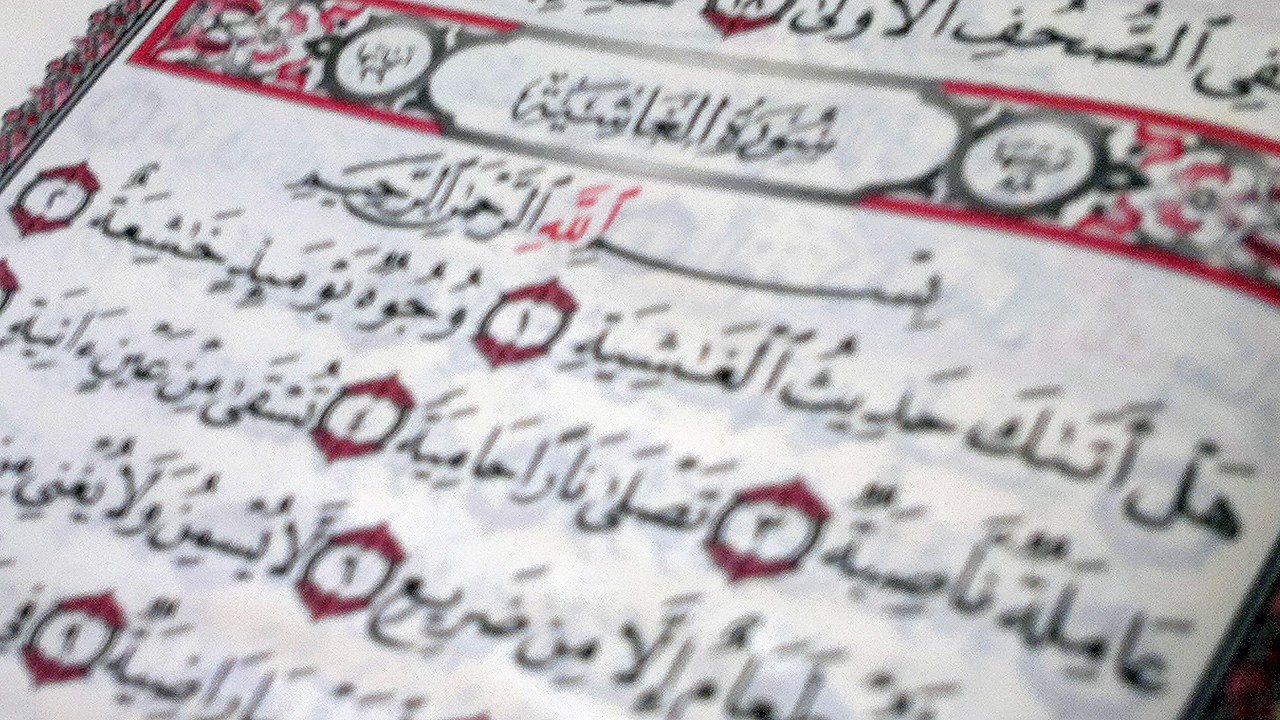 فِى ٱلصُّحُفِ ٱلْأُولَىٰ ١٨
سُورَةُ الغَاشِيَةِ
بِسْمِ ٱللَّهِ ٱلرَّحْمَٰنِ ٱلرَّحِيمِ
هَلْ أَتَىٰكَ حَدِيثُ ٱلْغَٰشِيَةِ ١ وُجُوهٌ يَوْمَئِذٍ خَٰشِعَةٌ ٢
عَامِلَةٌ نَّاصِبَةٌ ٣ تَصْلَىٰ نَارًا حَامِيَةً ٤ تُسْقَىٰ مِنْ عَيْنٍ ءَانِيَةٍ
طَعَامٌ إِلَّا مِن ضَرِيعٍ ٦ لَّا يُسْمِنُ وَلَا يُغْنِى
رَاضِيَةٌ ٩